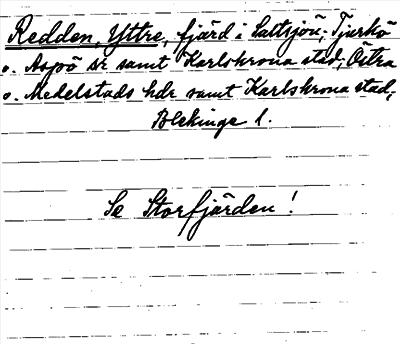 Redden, Yttre, fjärd i Saltsjön; Tjurkö
o. Aspö sr samt Karlskrona stad; Östra
o. Medelstads hdr samt Karlskrona stad;
Blekinge l.
Se Storfjärden!